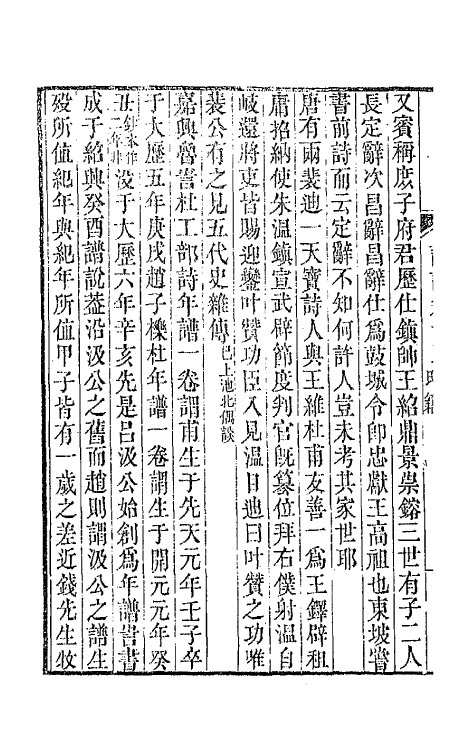 又賓稱庶子府君歷仕鎮帥王紹鼎景崇鎔三世有子二人
長定辭次昌辭昌辭仕為鼓城令卽忠獻王高祖也東坡嘗
書前詩而云定辭不知何許人豈未考其家世耶
唐有兩裴迪一天寶詩人與王維杜甫友善一為王鐸辟租
庸招納使朱溫鎮宣武辟節度判官旣篡位拜右僕射溫自
岐還將吏皆賜迎鑾叶贊功臣入見溫目迪曰叶贊之功唯
裴公有之見五代史雜傳已上池北偶談
嘉興魯訔杜工部詩年譜一卷謂甫生于先天元年壬子卒
于大歷五年庚戌趙子櫟杜年譜一卷謂生于開元元年癸
丑鈔本作二年非没于大歷六年辛亥先是呂汲公始創為年譜訔書
成于紹興癸酉譜說葢沿汲公之舊而趙則謂汲公之譜生
殁所值紀年與紀年所值甲子皆有一歲之差近錢先生牧